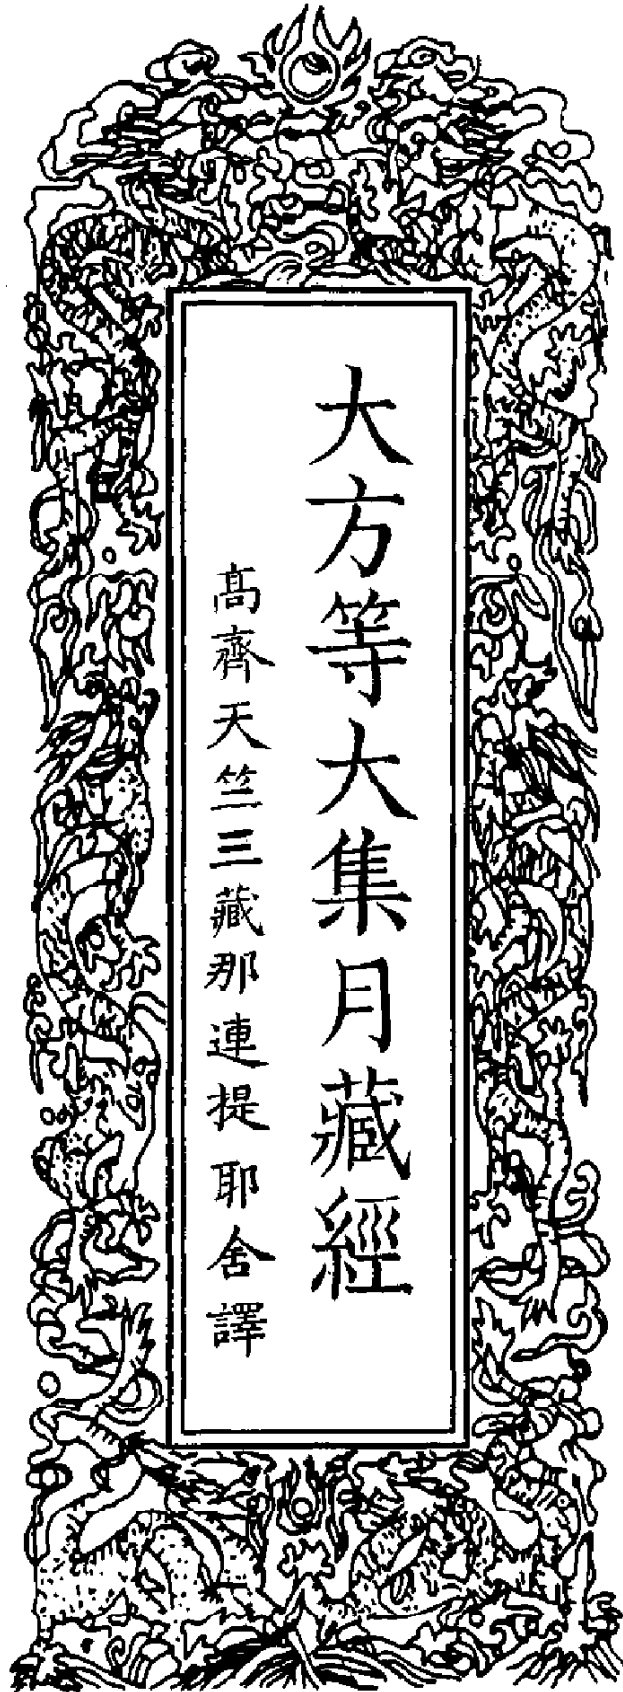 大方等大集月藏經
高齊天竺三藏那連提耶舍譯